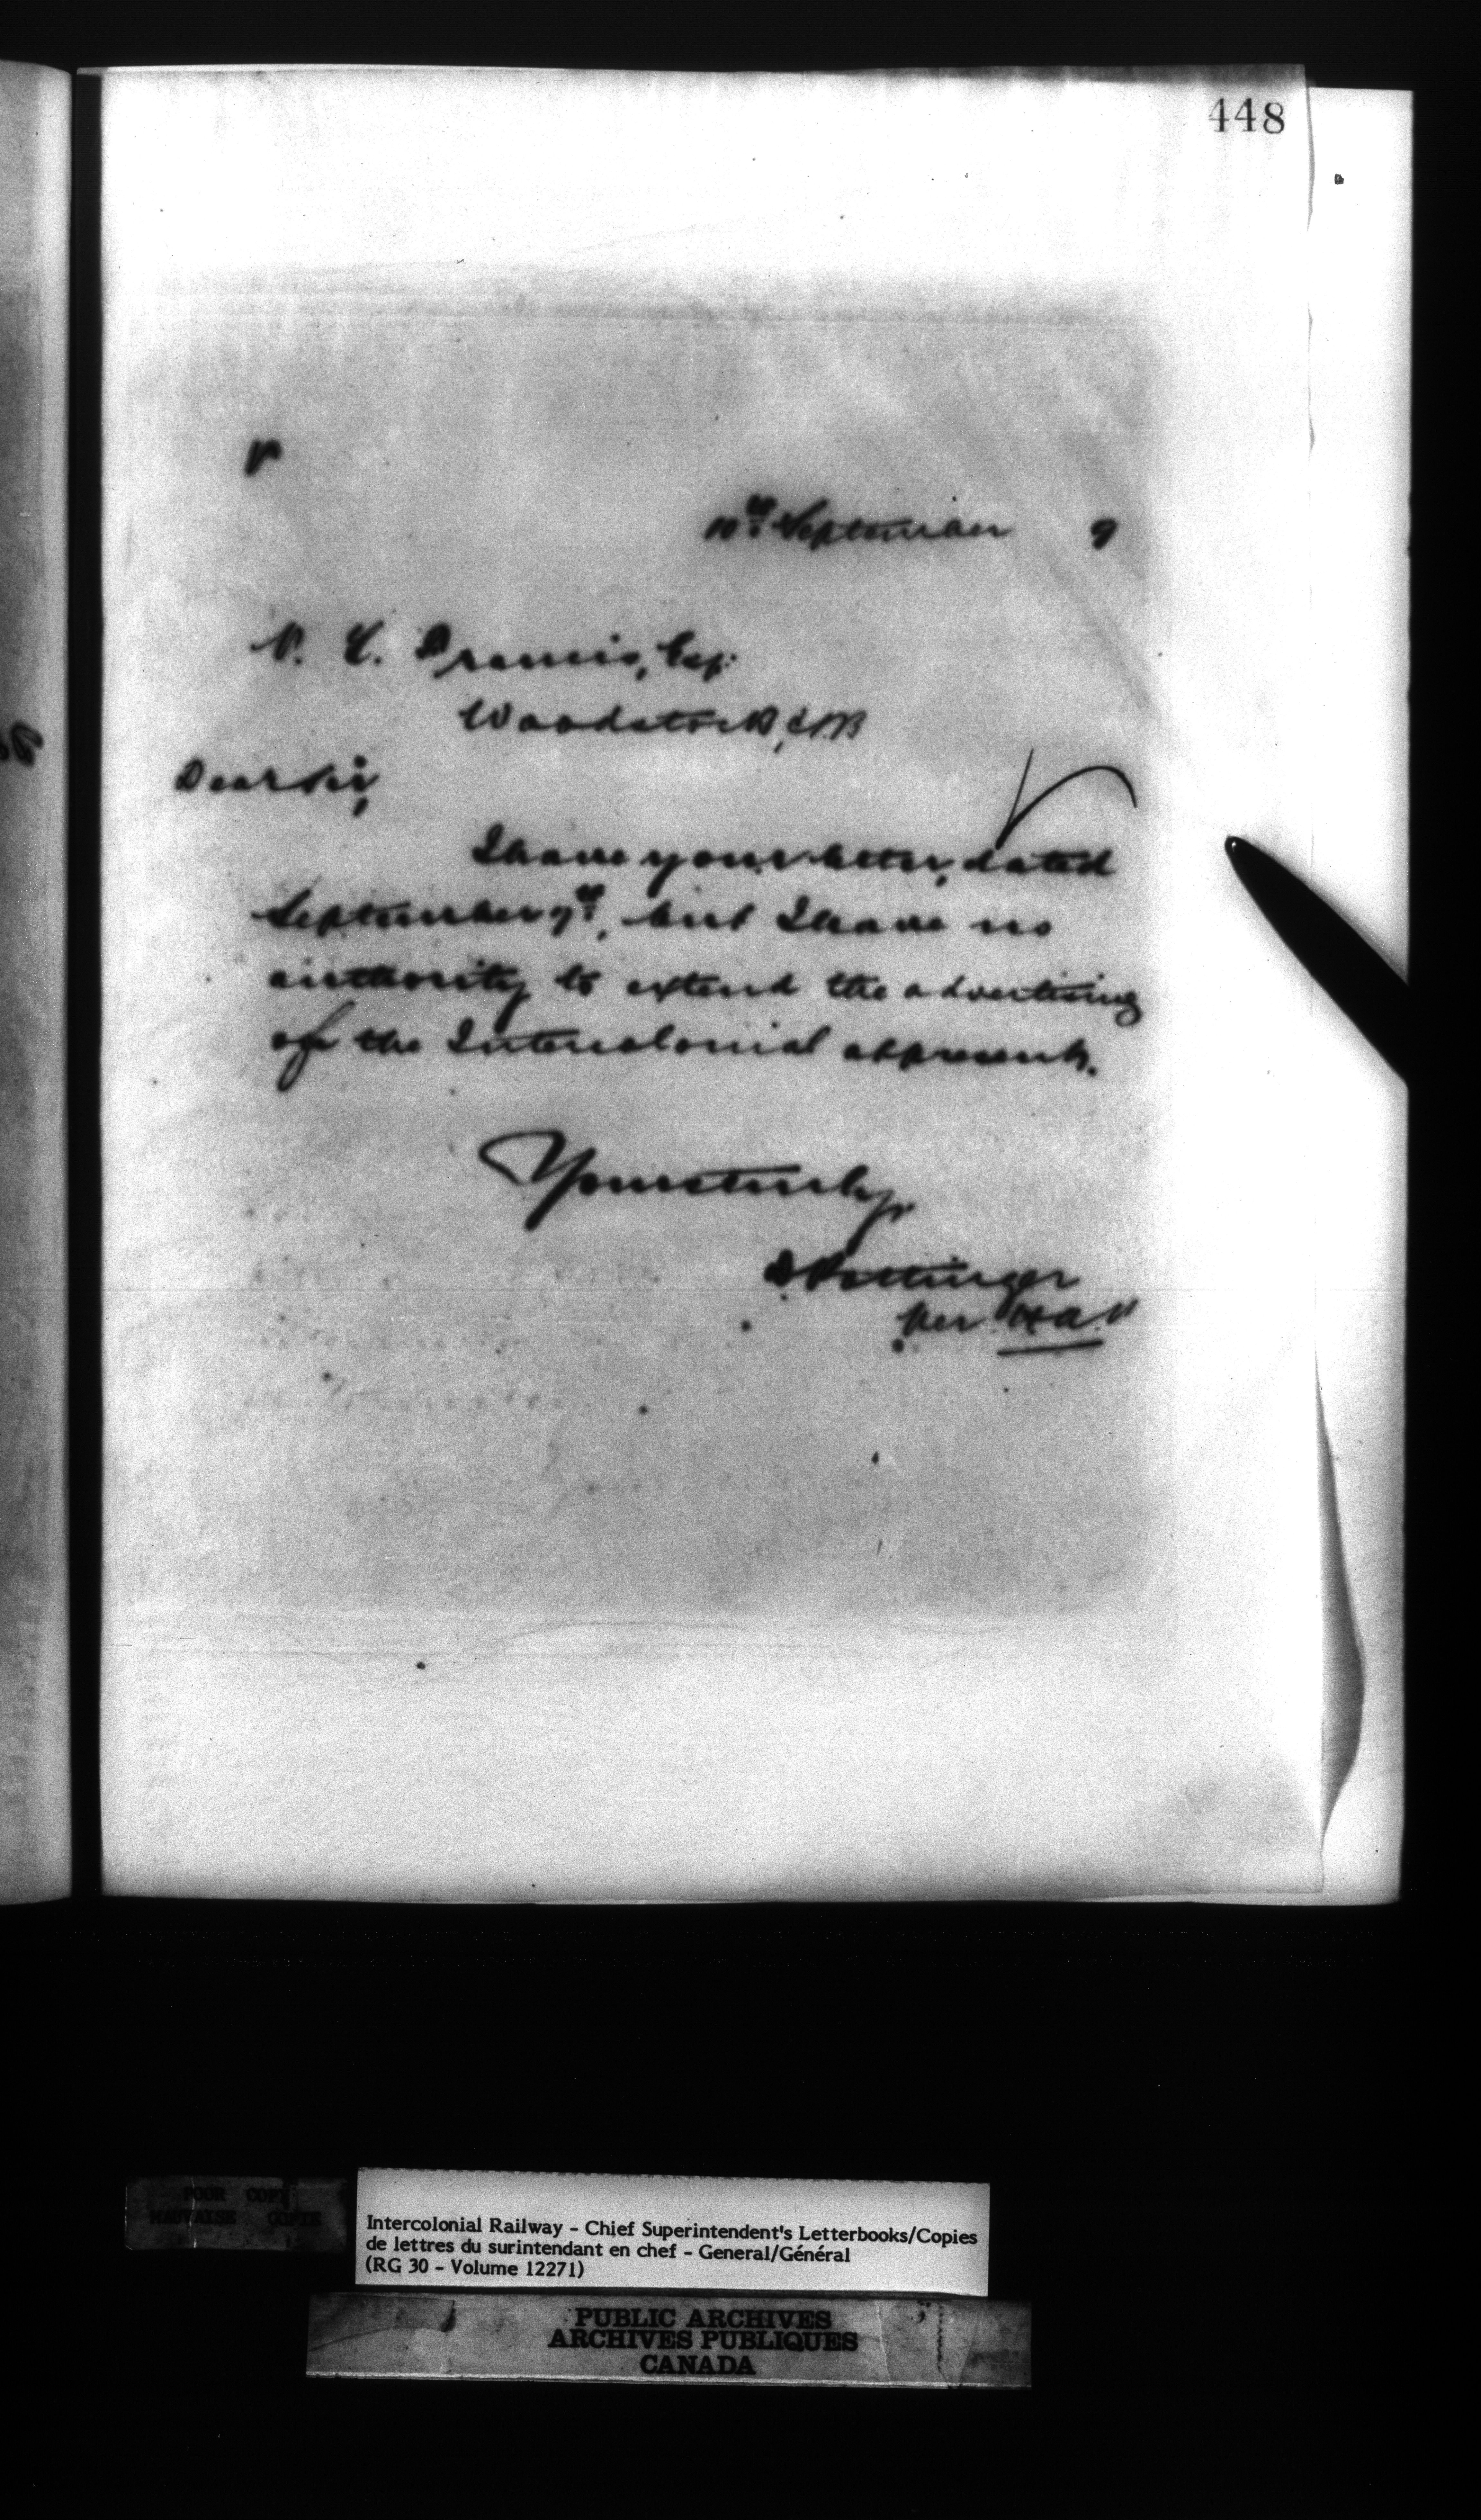 448
10th September 9
Francis, Esq:
Woodstock, N.B
Dear Sir,
I have your letter, dated
September 7th, but I have no
authority to extend the advertising
of the Intercolonial at present.
Yours truly,
D Pottinger
per
POOR COPY
MAUVAISE COPIE
Intercolonial Railway - Chief Superintendent's Letterbooks/Copies
de lettres du surintendant en chef - General/Général
(RG 30 - Volume 12271)
PUBLIC ARCHIVES
ARCHIVES PUBLIQUES
CANADA